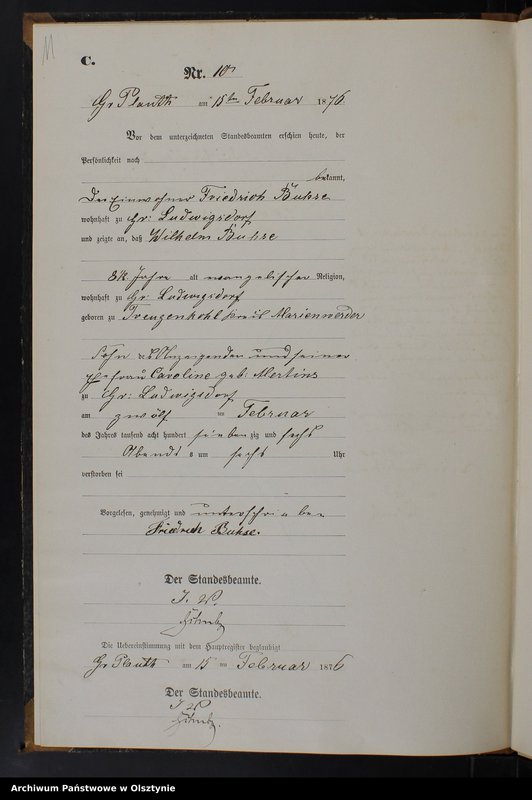 11
C.
Nr. 10
Gr Plauth am 15ten Februar 1876
Vor dem unterzeichneten Standesbeamten erschien heute, der
Persönlichkeit nach
bekannt,
Der Einwohner Friedrich Buhse
wohnhaft zu Gr: Ludwigsdorf
und zeigte an, daß Wilhelm Buhse
Jahre alt evangelischer Religion,
wohnhaft zu Gr. Ludwigsdorf
geboren zu Kreis Marienwerder
Sohn des Anzeigenden und seiner
Ehefrau Caroline geb: Mertins
zu Gr: Ludwigsdorf
am zwölf ten Februar
des Jahres tausend acht hundert sieben zig und sechs
Abends s um sechs Uhr
verstorben sei
Vorgelesen, genehmigt und unterschrieben
Friedrich Buhse.
Der Standesbeamte.
I. V.
Die Uebereinstimmung mit dem Hauptregister beglaubigt
Gr Plauth am 15 ten Februar 1876
Der Standesbeamte.
I. V.
Archiwum Państwowe w Olsztynie